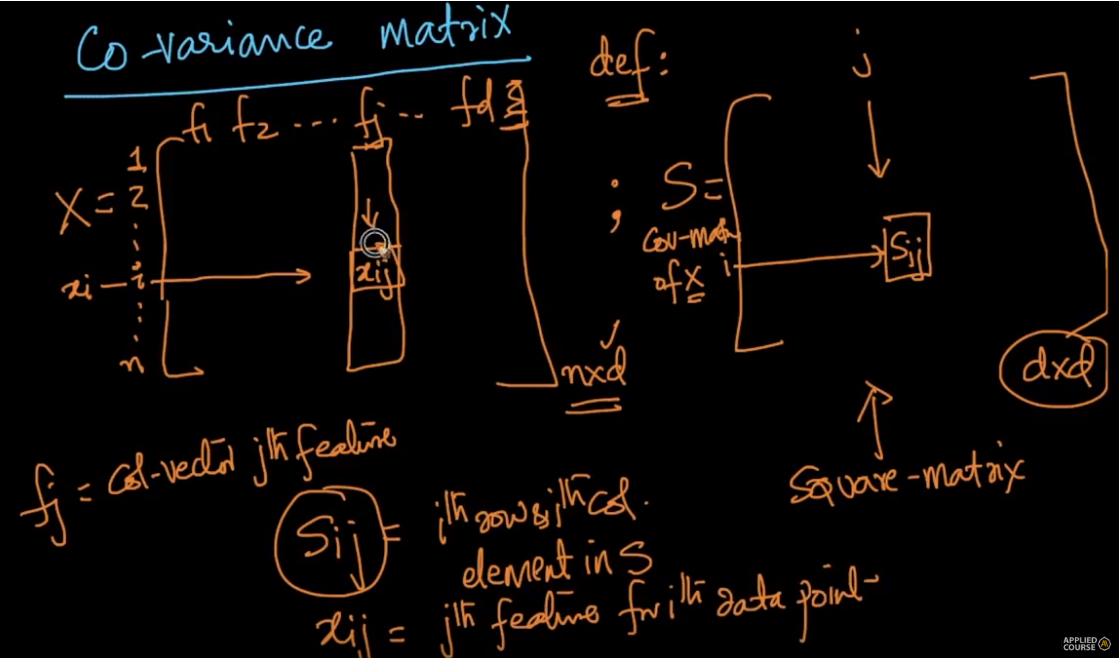 Co-variance matrix
def:
j
f1 f2 ... fj .. fd
1
X = 2
xi — i
xij
n
nxd
; S =
Cov-mat
of X
i
Sij
dxd
Square-matrix
fj = Col-vector jth feature
Sij = ith row & jth col.
element in S
xij = jth feature for ith data point
APPLIED
COURSE